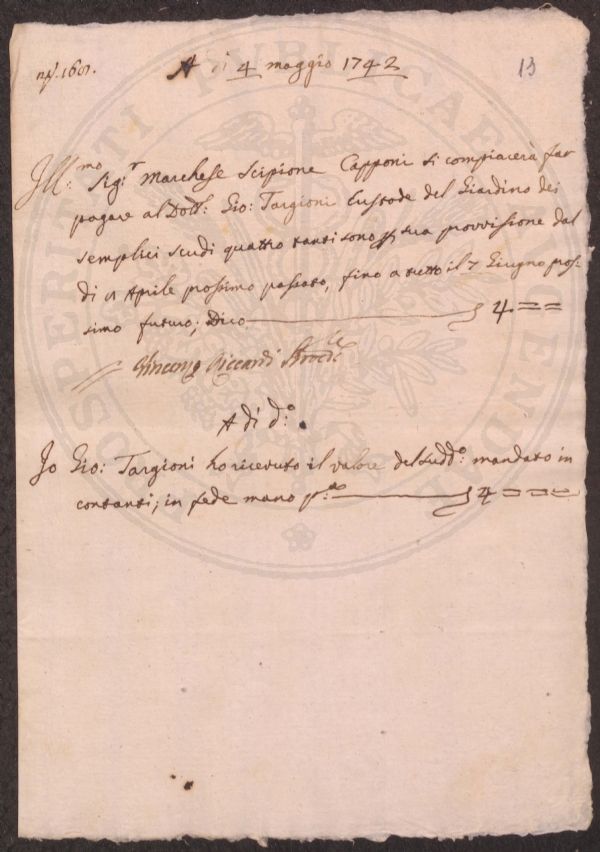 A di 4 maggio 1742
13
Ill:mo Sig:r Marchese Scipione Capponi si compiacerà far
pagare al Dott: Gio: Targioni Custode del Giardino dei
semplici scudi quattro tanti sono p sua provvisione dal
di Aprile prossimo passato, fino a tutto il 7 Giugno pros-
simo futuro; Dico 4 = =
Vincenzo Riccardi Provd:re
A di d:o
Io Gio: Targioni ho ricevuto il valore del sudd:o mandato in
contanti; in fede mano p:a 4 = = =
PROSPERITATI PUBLICAE AUGENDAE